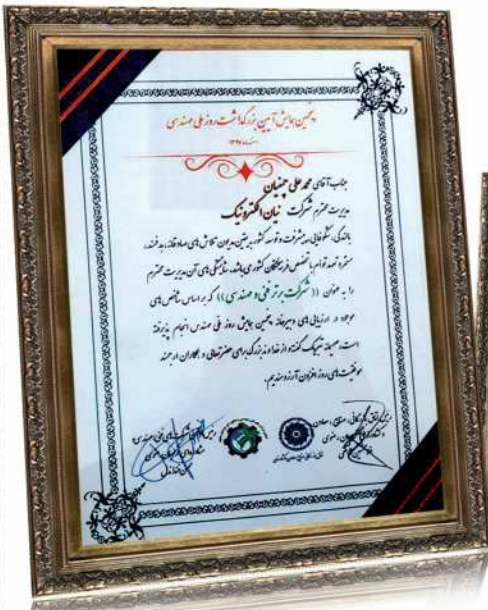 پنجمین همایش آیین بزرگداشت روز ملی مهندسی
اسفندماه ۱۳۹۷
جناب آقای محمد علی چمنیان
مدیریت محترم شرکت نیان الکترونیک
بالندگی، شکوفایی، پیشرفت و توسعه کشور به یقین مدیون تلاش های صادقانه، هدفمند،
مستمر و تعهد توام با تخصص فرهیختگان کشور می باشد. شایستگی های آن مدیریت محترم
را به عنوان (( شرکت برتر فنی و مهندسی )) که بر اساس شاخص های
موجود در ارزیابی های دبیرخانه پنجمین همایش روز ملی مهندسی انجام پذیرفته
است، صمیمانه تبریک گفته و از خداوند بزرگ برای حضرتعالی و همکاران ارجمند
موفقیت های روز افزون آرزومندیم.
رئیس اتاق بازرگانی، صنایع، معادن
و کشاورزی خراسان رضوی
رئیس شرکت های فنی مهندسی
خراسان رضوی